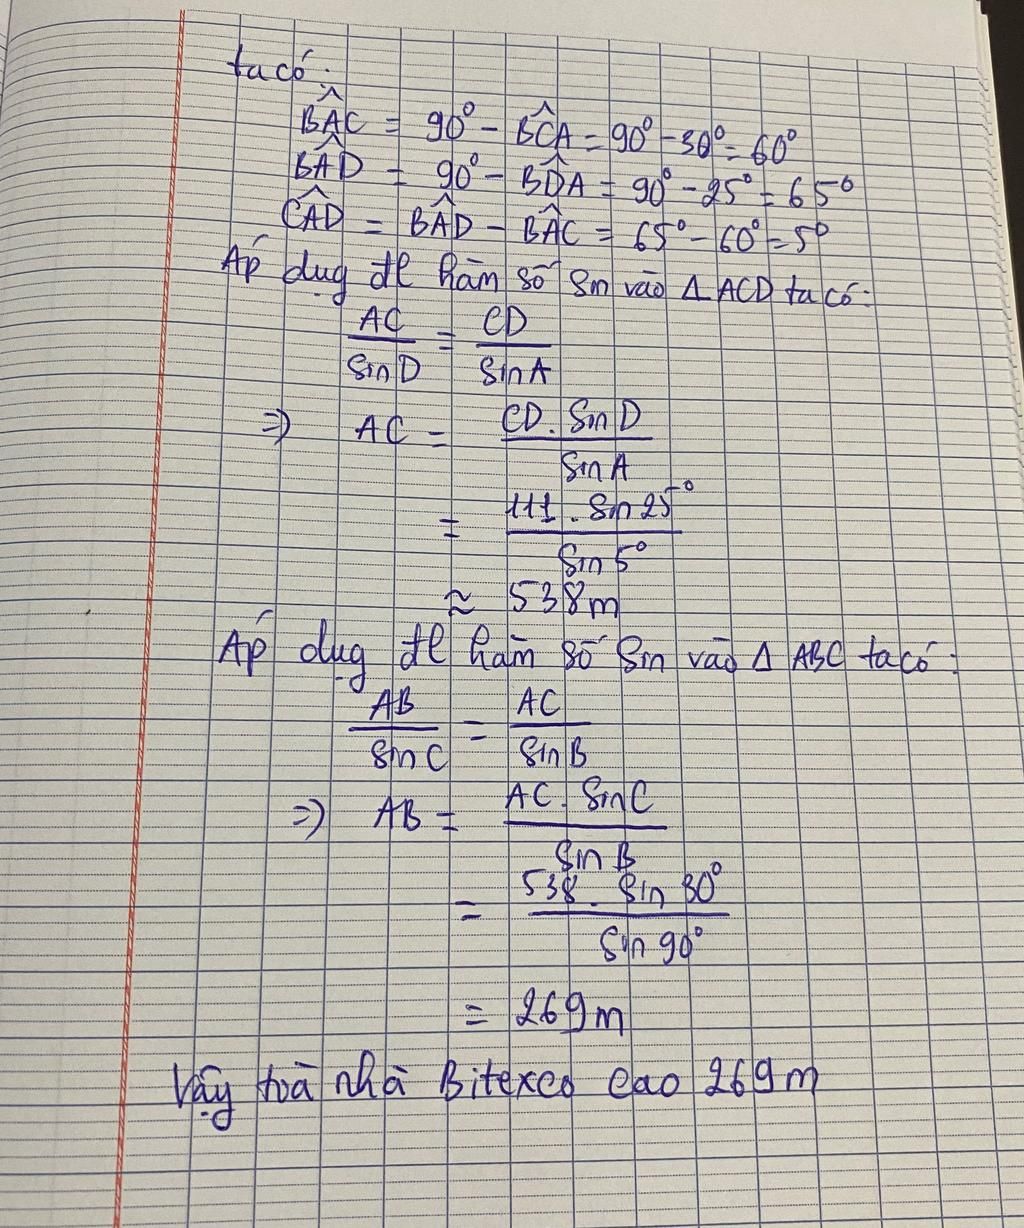 ta có:
BÂC = 90° - BĈA = 90° - 30° = 60°
BÂD = 90° - BD̂A = 90° - 25° = 65°
CÂD = BÂD - BÂC = 65° - 60° = 5°
Áp dụg đl hàm số sin vào Δ ACD ta có:
AC/Sin D = CD/Sin A
=> AC = CD. Sin D/Sin A
= 111. Sin 25°/Sin 5°
≈ 538m
Áp dụg đl hàm số Sin vào Δ ABC ta có:
AB/Sin C = AC/Sin B
=> AB = AC. Sin C/Sin B
= 538. Sin 30°/Sin 90°
= 269m
Vậy toà nhà Bitexco cao 269m